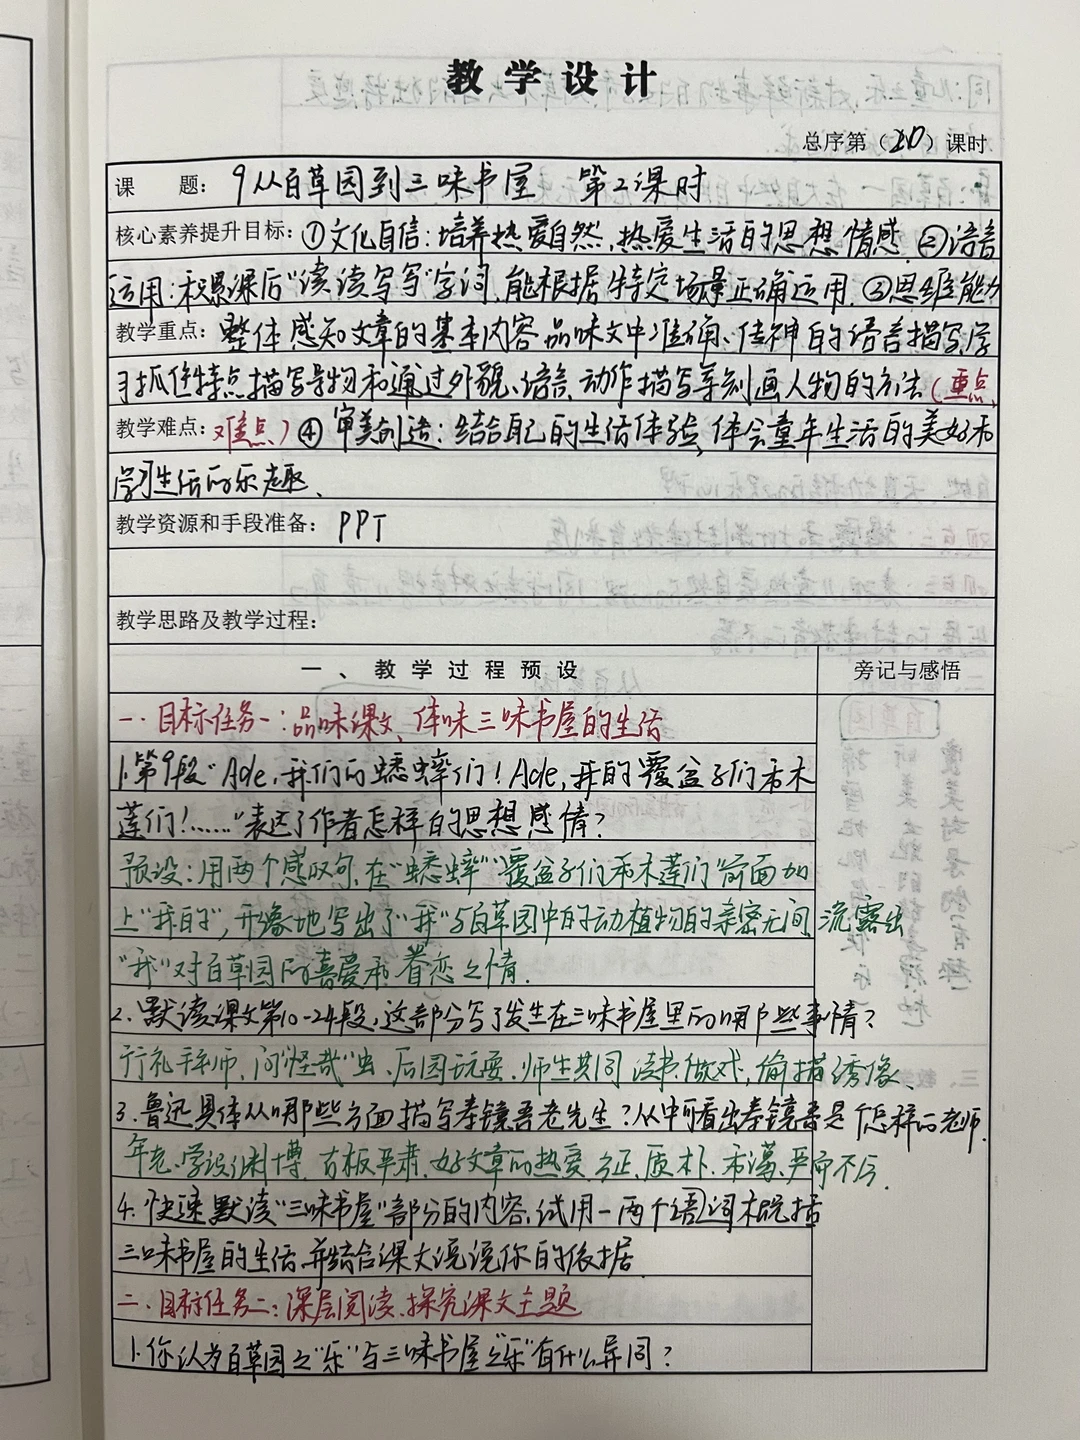 教学设计
总序第（20）课时
课 题：9从百草园到三味书屋 第2课时
核心素养提升目标：①文化自信：培养热爱自然，热爱生活的思想情感。②语言
运用：积累课后“读读写写”字词，能根据特定场景正确运用。③思维能力
教学重点：整体感知文章的基本内容，品味文中准确、传神的语言描写，学
习抓住特点描写景物和通过外貌、语言、动作描写等刻画人物的方法（重点、
教学难点：难点）④审美创造：结合自己的生活体验，体会童年生活的美好和
学习生活的乐趣、
教学资源和手段准备：PPT
教学思路及教学过程：
一、教学过程预设
旁记与感悟
一.目标任务一：品味课文、体味三味书屋的生活
1.第9段“Ade，我们的蟋蟀们！Ade，我的覆盆子们和木
莲们！……”表达了作者怎样的思想感情？
预设：用两个感叹句，在“蟋蟀”“覆盆子们和木莲们”前面加
上“我的”，形象地写出了“我”与百草园中的动植物的亲密无间，流露出
“我”对百草园的喜爱和眷恋之情.
2.默读课文第10-24段，这部分写了发生在三味书屋里的哪些事情？
行礼拜师、问“怪哉”虫、后园玩耍.师生共同读书.做戏，偷描绣像、
3.鲁迅具体从哪些方面描写寿镜吾老先生？从中可看出寿镜吾是怎样的老师.
年老、学识渊博、古板严肃、好文章的热爱.方正、质朴、和蔼、严而不厉.
4.快速默读“三味书屋”部分的内容，试用一两个词概括
三味书屋的生活，并结合课文说说你的依据
二.目标任务二：深层阅读、探究课文主题
1.你认为百草园之“乐”与三味书屋之“乐”有什么异同？